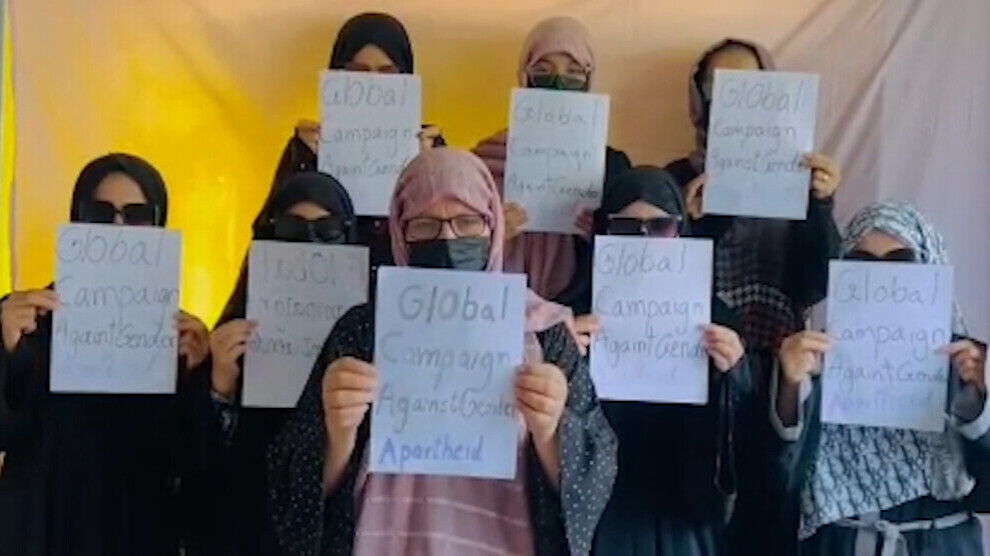 Global
Campaign
Againt Gender
Global
Campaign
Againt Gender
Global
Campaign
Against Gender
Global
Campaign
Againt Gender
Global
Campaign
Against Gender
Apartheid
Global
Campaign
Againt Gender
Global
Campaign
Againt Gender
Apartheid